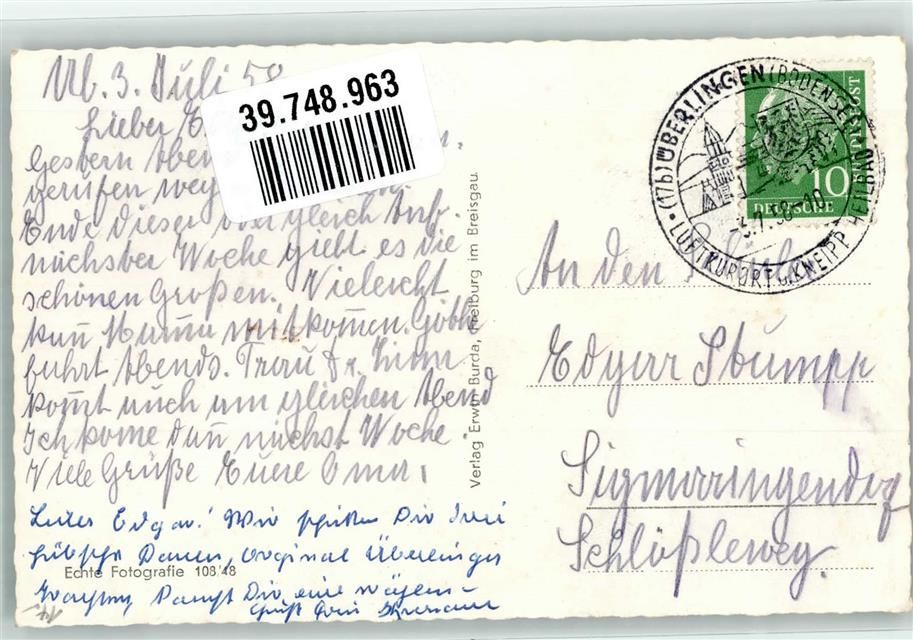 Ub. 3. Juli 58
39.748.963
Lieber E
Gestern Aben
gerufen weg
Ende dieser oder gleich Anf.
nächster Woche giebt es die
schönen Großen. Vieleicht
kan Mama mitkommen. Göbl
fährt Abends. Frau Dr.
kommt auch am gleichen Abend
Ich kome dan nächst Woche
Viele Grüße Euere Oma.
Lieber Edgar! Wir schicken Dir drei
hübsche Damen, Original Überlinger
Dir eine
Gruß Dein
Echte Fotografie 108/48
Verlag Erwin Burda, Freiburg im Breisgau.
(17b) ÜBERLINGEN (BODENSEE)
LUFTKURORT U. KNEIPP HEILBAD
3.7.58-10
DEUTSCHE
BUNDESPOST
10
An den Schüler
Edgar Stumpp
Sigmaringendorf
Schlößleweg.